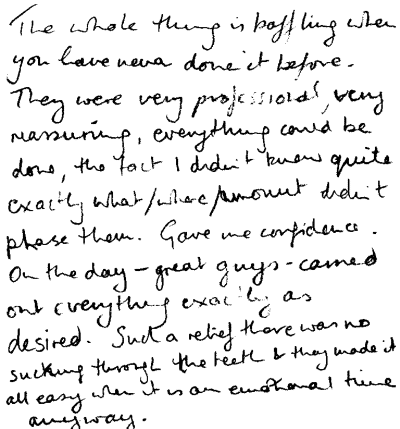 The whole thing is baffling when
you have never done it before.
They were very professional, very
reassuring, everything could be
done, the fact I didn't know quite
exactly what/where/amount didn't
phase them. Gave me confidence.
On the day – great guys – carried
out everything exactly as
desired. Such a relief there was no
sucking through the teeth & they made it
all easy when it is an emotional time
anyway.